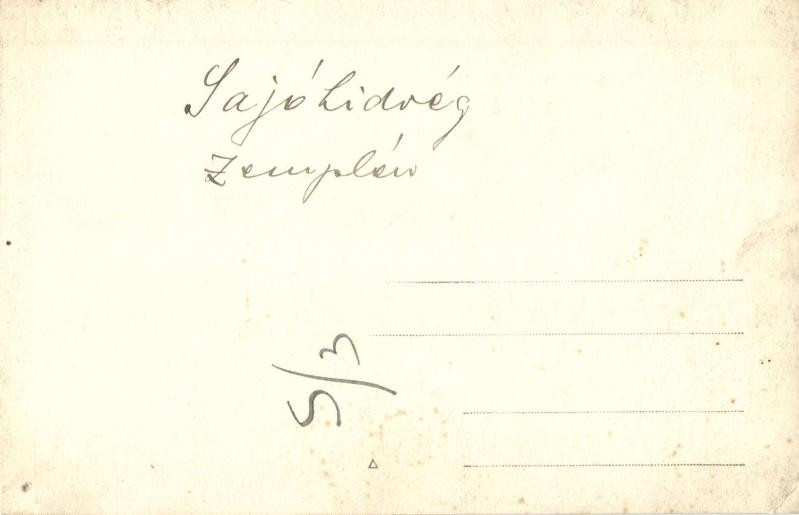 Sajóhidvég
Zemplén
5/3